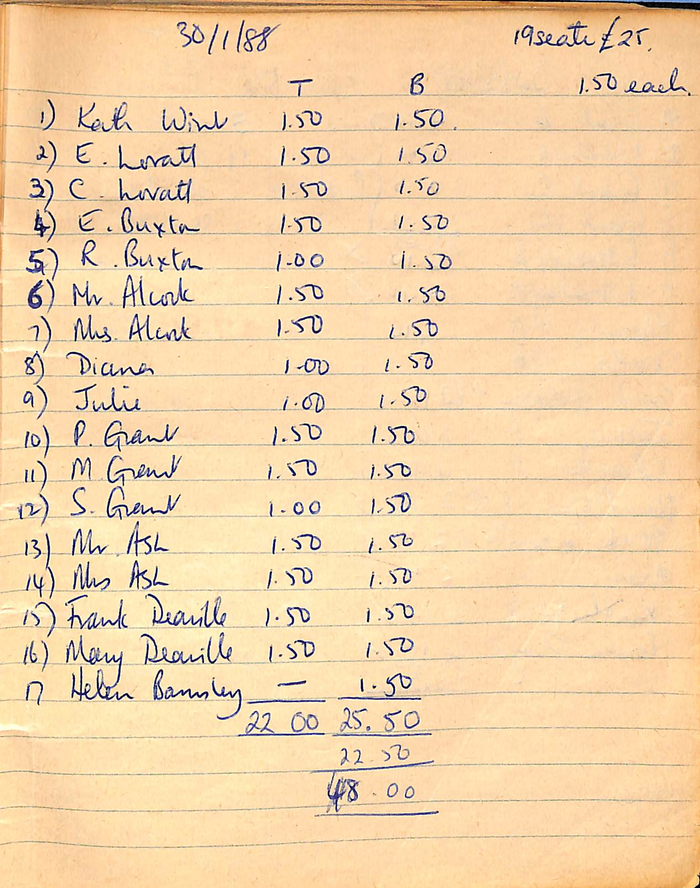 30/1/88 19 seats £25.
T B 1.50 each.
1) Kath Wint 1.50 1.50.
2) E. Lovatt 1.50 1.50
3) C. Lovatt 1.50 1.50
4) E. Buxton 1.50 1.50
5) R. Buxton 1.00 1.50
6) Mr. Alcock 1.50 1.50
7) Mrs. Alcock 1.50 1.50
8) Diana 1.00 1.50
9) Julie 1.00 1.50
10) P. Grant 1.50 1.50
11) M Grant 1.50 1.50
12) S. Grant 1.00 1.50
13) Mr. Ash 1.50 1.50
14) Mrs Ash 1.50 1.50
15) Frank Deaville 1.50 1.50
16) Mary Deaville 1.50 1.50
17 Helen Barnsley — 1.50
22 00 25.50
22.50
48.00